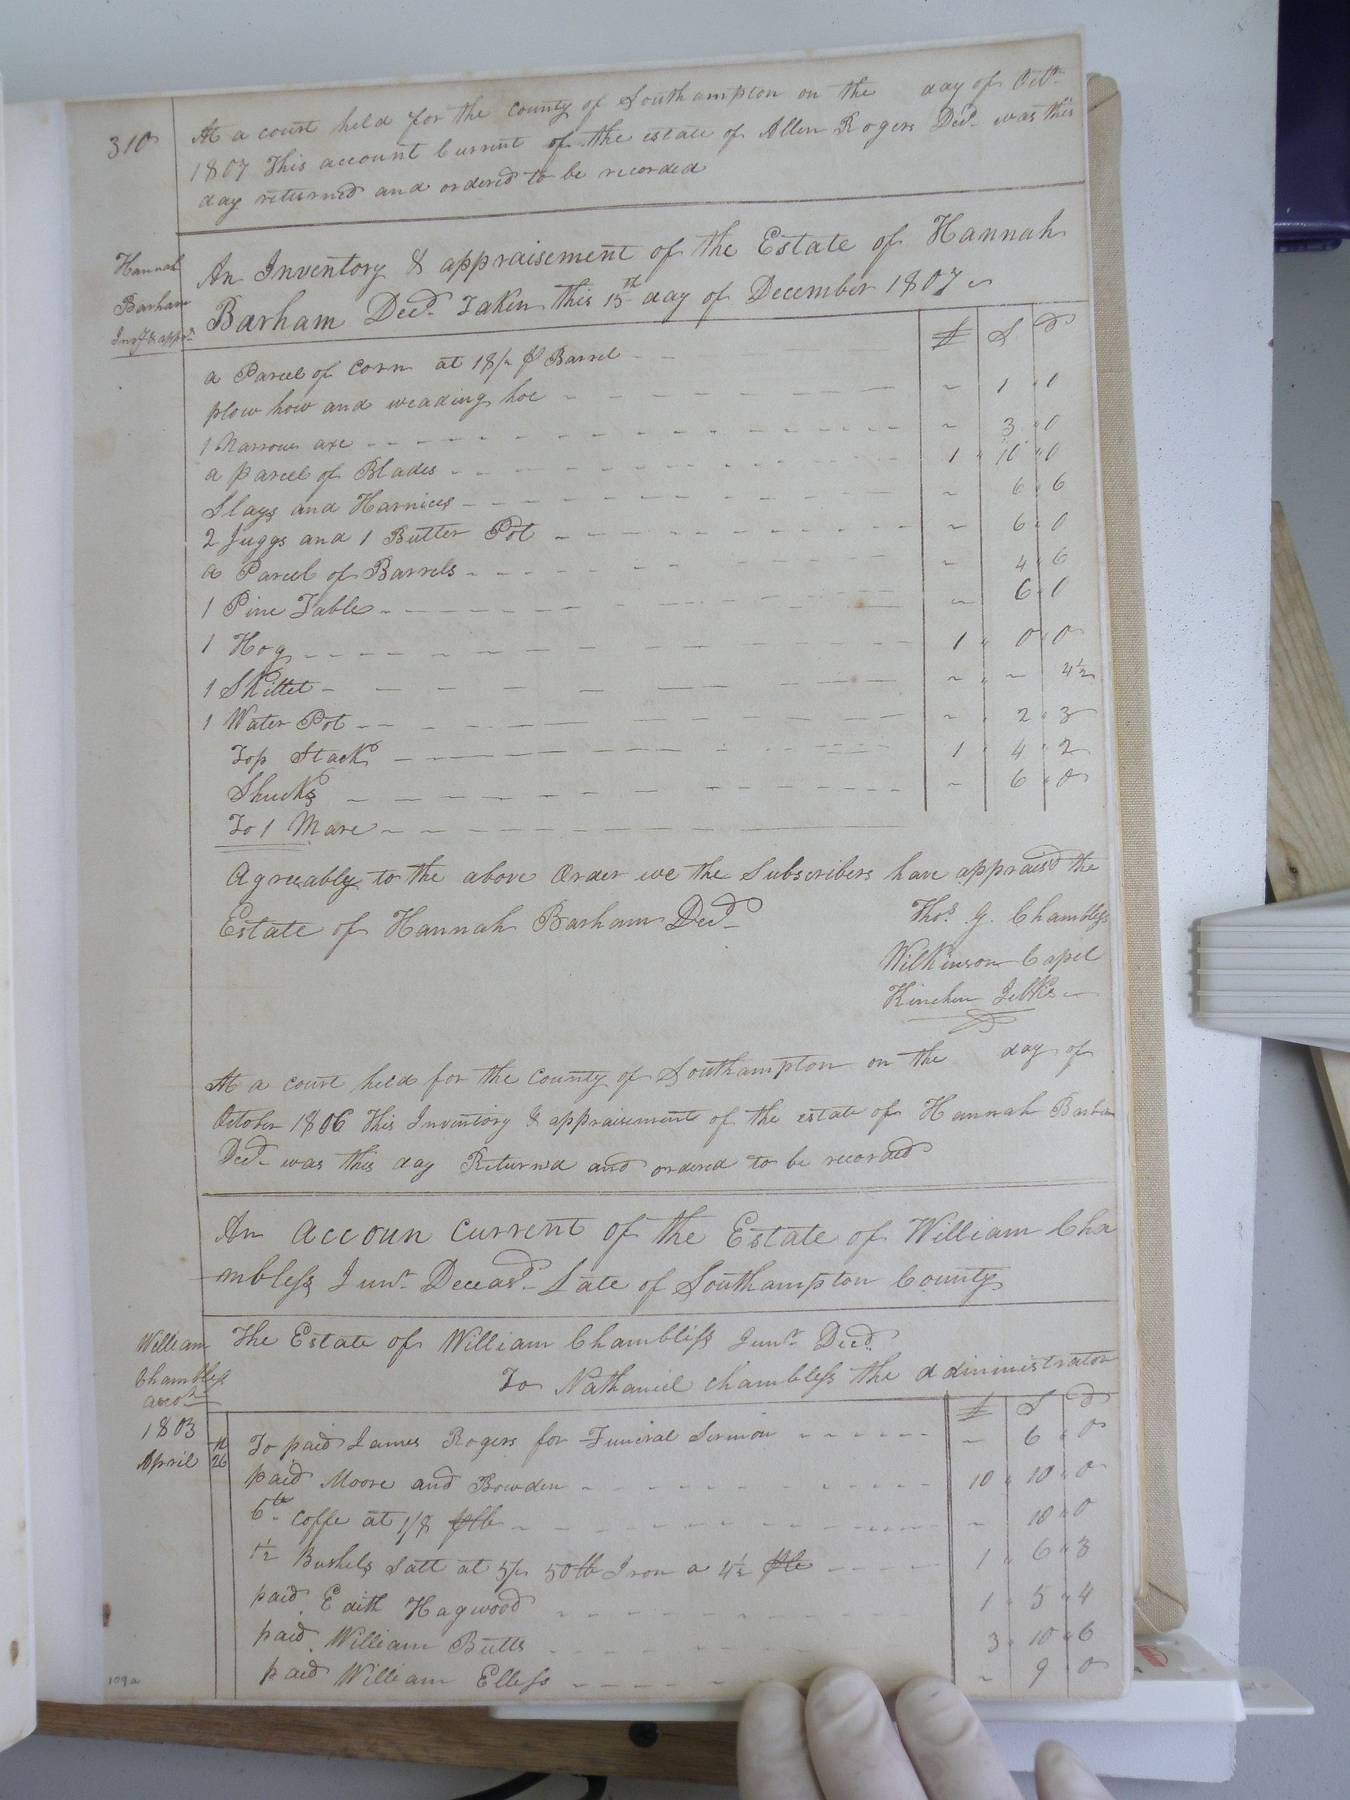 310
At a court held for the County of Southampton on the day of Octr
1807 This account Current of the estate of Allen Rogers Decd was this
day returned and ordered to be recorded
Hannah
Barham
Invy & apprt
An Inventory & appraisement of the Estate of Hannah
Barham Decd Taken this 15th day of December 1807
£ S D
a Parcel of Corn at 18/ p Barrel
plow how and weading hoe ~ 1 " 0
1 Narrow axe ~ 3 " 0
a parcel of Blades 1 " 10 " 0
Slays and Harnices ~ 6 " 6
2 Juggs and 1 Butter Pot ~ 6 " 0
a Parcel of Barrels ~ 4 " 6
1 Pine Table ~ 6 " 0
1 Hog 1 " 0 " 0
1 Skittet ~ " ~ 4½
1 Water Pot ~ " 2 " 3
Top Stack 1 " 4 " 2
Shucks ~ 6 " 0
To 1 Mare
Agreeably to the above Order we the Subscribers have appraisd the
Estate of Hannah Barham Decd
Thos. G. Chambless
Wilkinson Capel
Kinchen Jelks
At a court held for the County of Southampton on the day of
October 1806 This Inventory & appraisement of the estate of Hannah Barham
Decd was this day Returnd and ordered to be recorded
An accoun Current of the Estate of William Cha
mbless Junr Deceasd Late of Southampton County
William
Chambless
accot
1803
April
The Estate of William Chambliss Junr Decd
To Nathaniel Chambless the administrator
£ S D
26 To paid James Rogers for Funeral Sermon ~ 6 " 0
paid Moore and Bowden 10 " 10 " 0
6lb Coffe at 1/8 plb ~ 10 " 0
1½ Bushels Satt at 5/ 50lb Iron a 4½ plb 1 " 6 " 3
paid Edith Hagwood 1 " 5 " 4
paid William Butts 3 " 10 " 6
paid William Elless ~ 9 " 0
109a